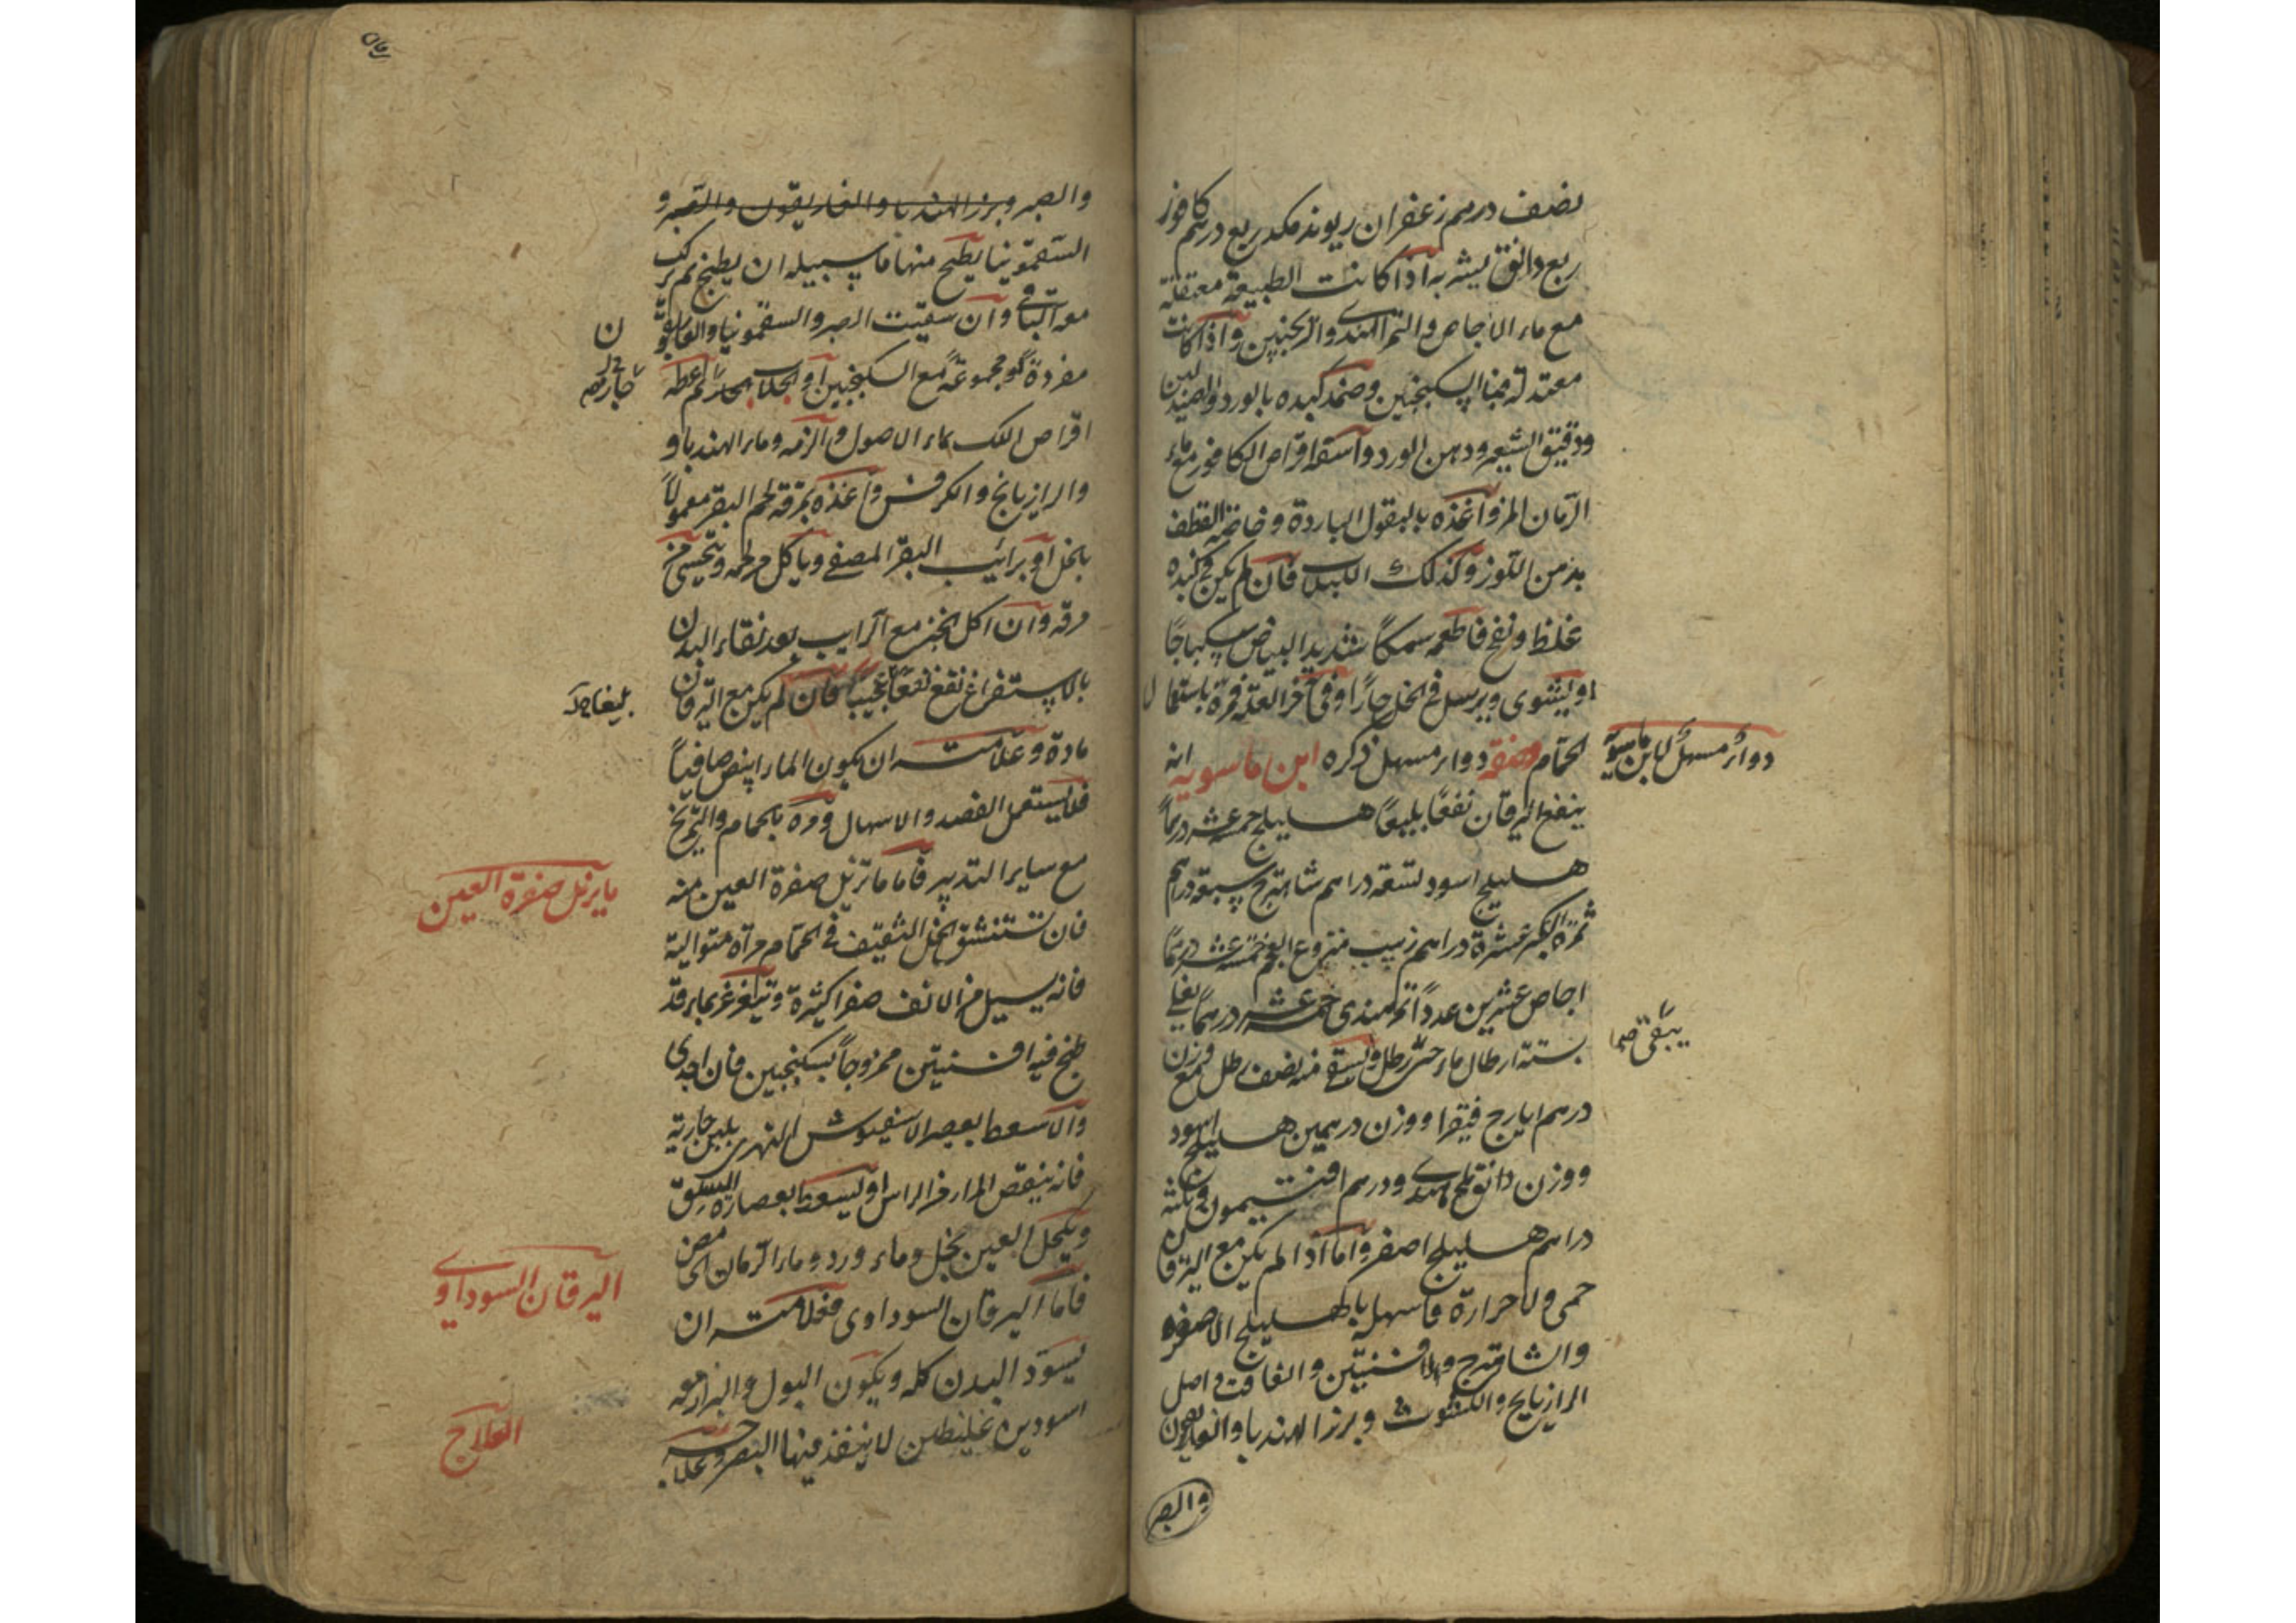 نصف درهم زعفران ريوند مكد ربع درهم كافور
ربع دانق يشربه اذا كانت الطبيعة معتقلة
مع ماء الاجاص والتمر الهندى والترنجبين واذا كانت
معتدلة فبالسكنجبين وضمد كبده بالورد والصندلين
ودقيق الشعير ودهن الورد واسقه اقراص الكافور بماء
الرمان المز واغذه بالبقول الباردة وخاصة القطف
بدهن اللوز وكذلك اللبلاب فان لم يكن فى كبده
غلظ ونفخ فاطعمه سمكاً شديد البياض سكباجاً
او يشوى ويرسل فى الخل حاراً وفى آخر العلة فمره باستعمال
الحمام صفة دواء مسهل ذكره ابن ماسويه انه
ينفع اليرقان نفعاً بليغاً هليلج خمسة عشر درهماً
هليلج اسود تسعة دراهم شاهترج سبعة دراهم
ثمرة الكبر عشرة دراهم زبيب منزوع العجم خمسة عشر درهماً
اجاص عشرين عدداً تمر هندى خمسة عشر درهماً يغلى
بستة ارطال ماء حتى رطل ويسقى منه نصف رطل مع وزن
درهم ايارج فيقرا ووزن درهمين هليلج اسود
ووزن دانق ملح هندى ودرهم افتيمون وثلثة
دراهم هليلج اصفر واما اذا لم يكن مع اليرقان
حمى ولا حرارة فاسهله بالهليلج الاصفر
والشاهترج والافسنتين والغافت واصل
الرازيانج والكشوث وبزر الهندبا والغاريقون
والصبر
دواء مسهل لابن ماسويه
يبقى صح
والصبر وبزر الهندبا والغاريقون والصبر و
السقمونيا يطبخ منها ما سبيله ان يطبخ ثم يركب
معه الباقى وان سقيت الصبر والسقمونيا والغاريقون
مفردة او مجموعة مع السكنجبين او الجلاب ثم اعطه
اقراص اللك بماء الاصول والزمه وماء الهندبا و
والرازيانج والكرفس واغذه بمرقة لحم البقر معمولاً
بالخل او برائب البقر المصفى وياكل من لحمه ويتحسى من
مرقه وان اكل الخبز مع الرايب بعد نقاء البدن
بالاستفراغ نفع نفعاً عجيباً فان لم يكن مع اليرقان
مادة وعلامته ان يكون الماء ابيض صافياً
فلا يستعمل الفصد والاسهال ومره بالحمام والتمريخ
مع ساير التدبير فاما ما تزيل صفرة العين منه
فان تستنشق الخل الثقيف فى الحمام مراة متوالية
فانه يسيل من الانف صفرا كثيرة ويتغرغر بماء قد
طبخ فيه افسنتين ممزوجاً بسكنجبين فان اجدى
والا سعط بعصر الاسفيوش النهرى بلبن جارية
فانه ينقص المرار من الراس او يسعط بعصارة السلق
ويكحل العين بخل وماء ورد وماء الرمان
فاما اليرقان السوداوى فعلامته ان
يسود البدن كله ويكون البول والبراز معه
اسودين غليظين لا ينفذ فيها البصر وعلاجه
ما يزيل صفرة العين
اليرقان السوداوى
العلاج